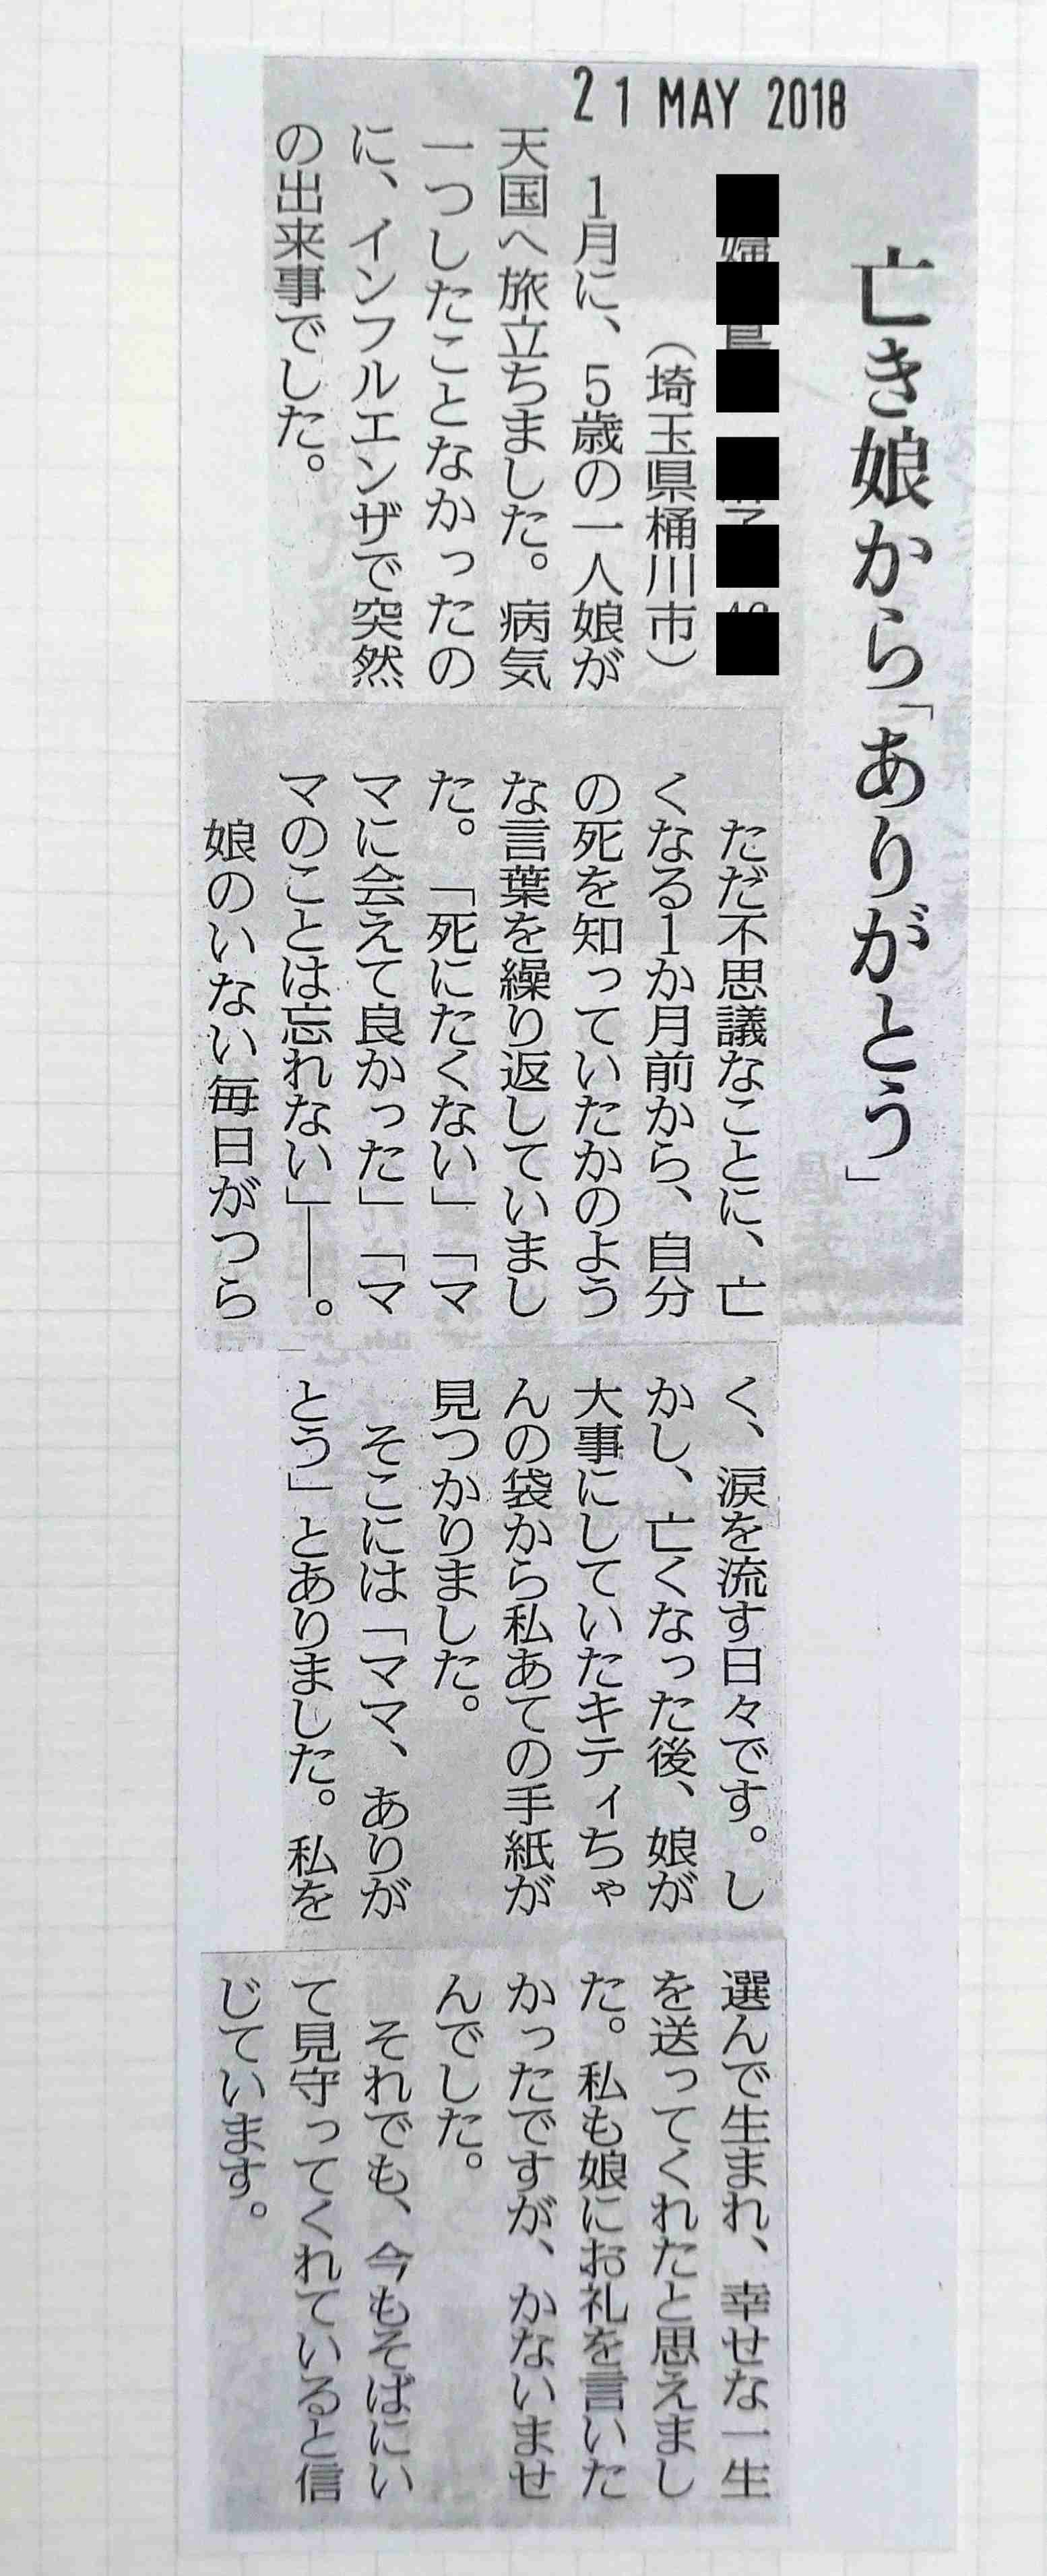 21 MAY 2018
亡き娘から「ありがとう」
（埼玉県桶川市）
　1月に、5歳の一人娘が
天国へ旅立ちました。病気
一つしたことなかったの
に、インフルエンザで突然
の出来事でした。
　ただ不思議なことに、亡
くなる1か月前から、自分
の死を知っていたかのよう
な言葉を繰り返していまし
た。「死にたくない」「マ
マに会えて良かった」「マ
マのことは忘れない」――。
　娘のいない毎日がつら
く、涙を流す日々です。し
かし、亡くなった後、娘が
大事にしていたキティちゃ
んの袋から私あての手紙が
見つかりました。
　そこには「ママ、ありが
とう」とありました。私を
選んで生まれ、幸せな一生
を送ってくれたと思えまし
た。私も娘にお礼を言いた
かったですが、かないませ
んでした。
　それでも、今もそばにい
て見守ってくれていると信
じています。